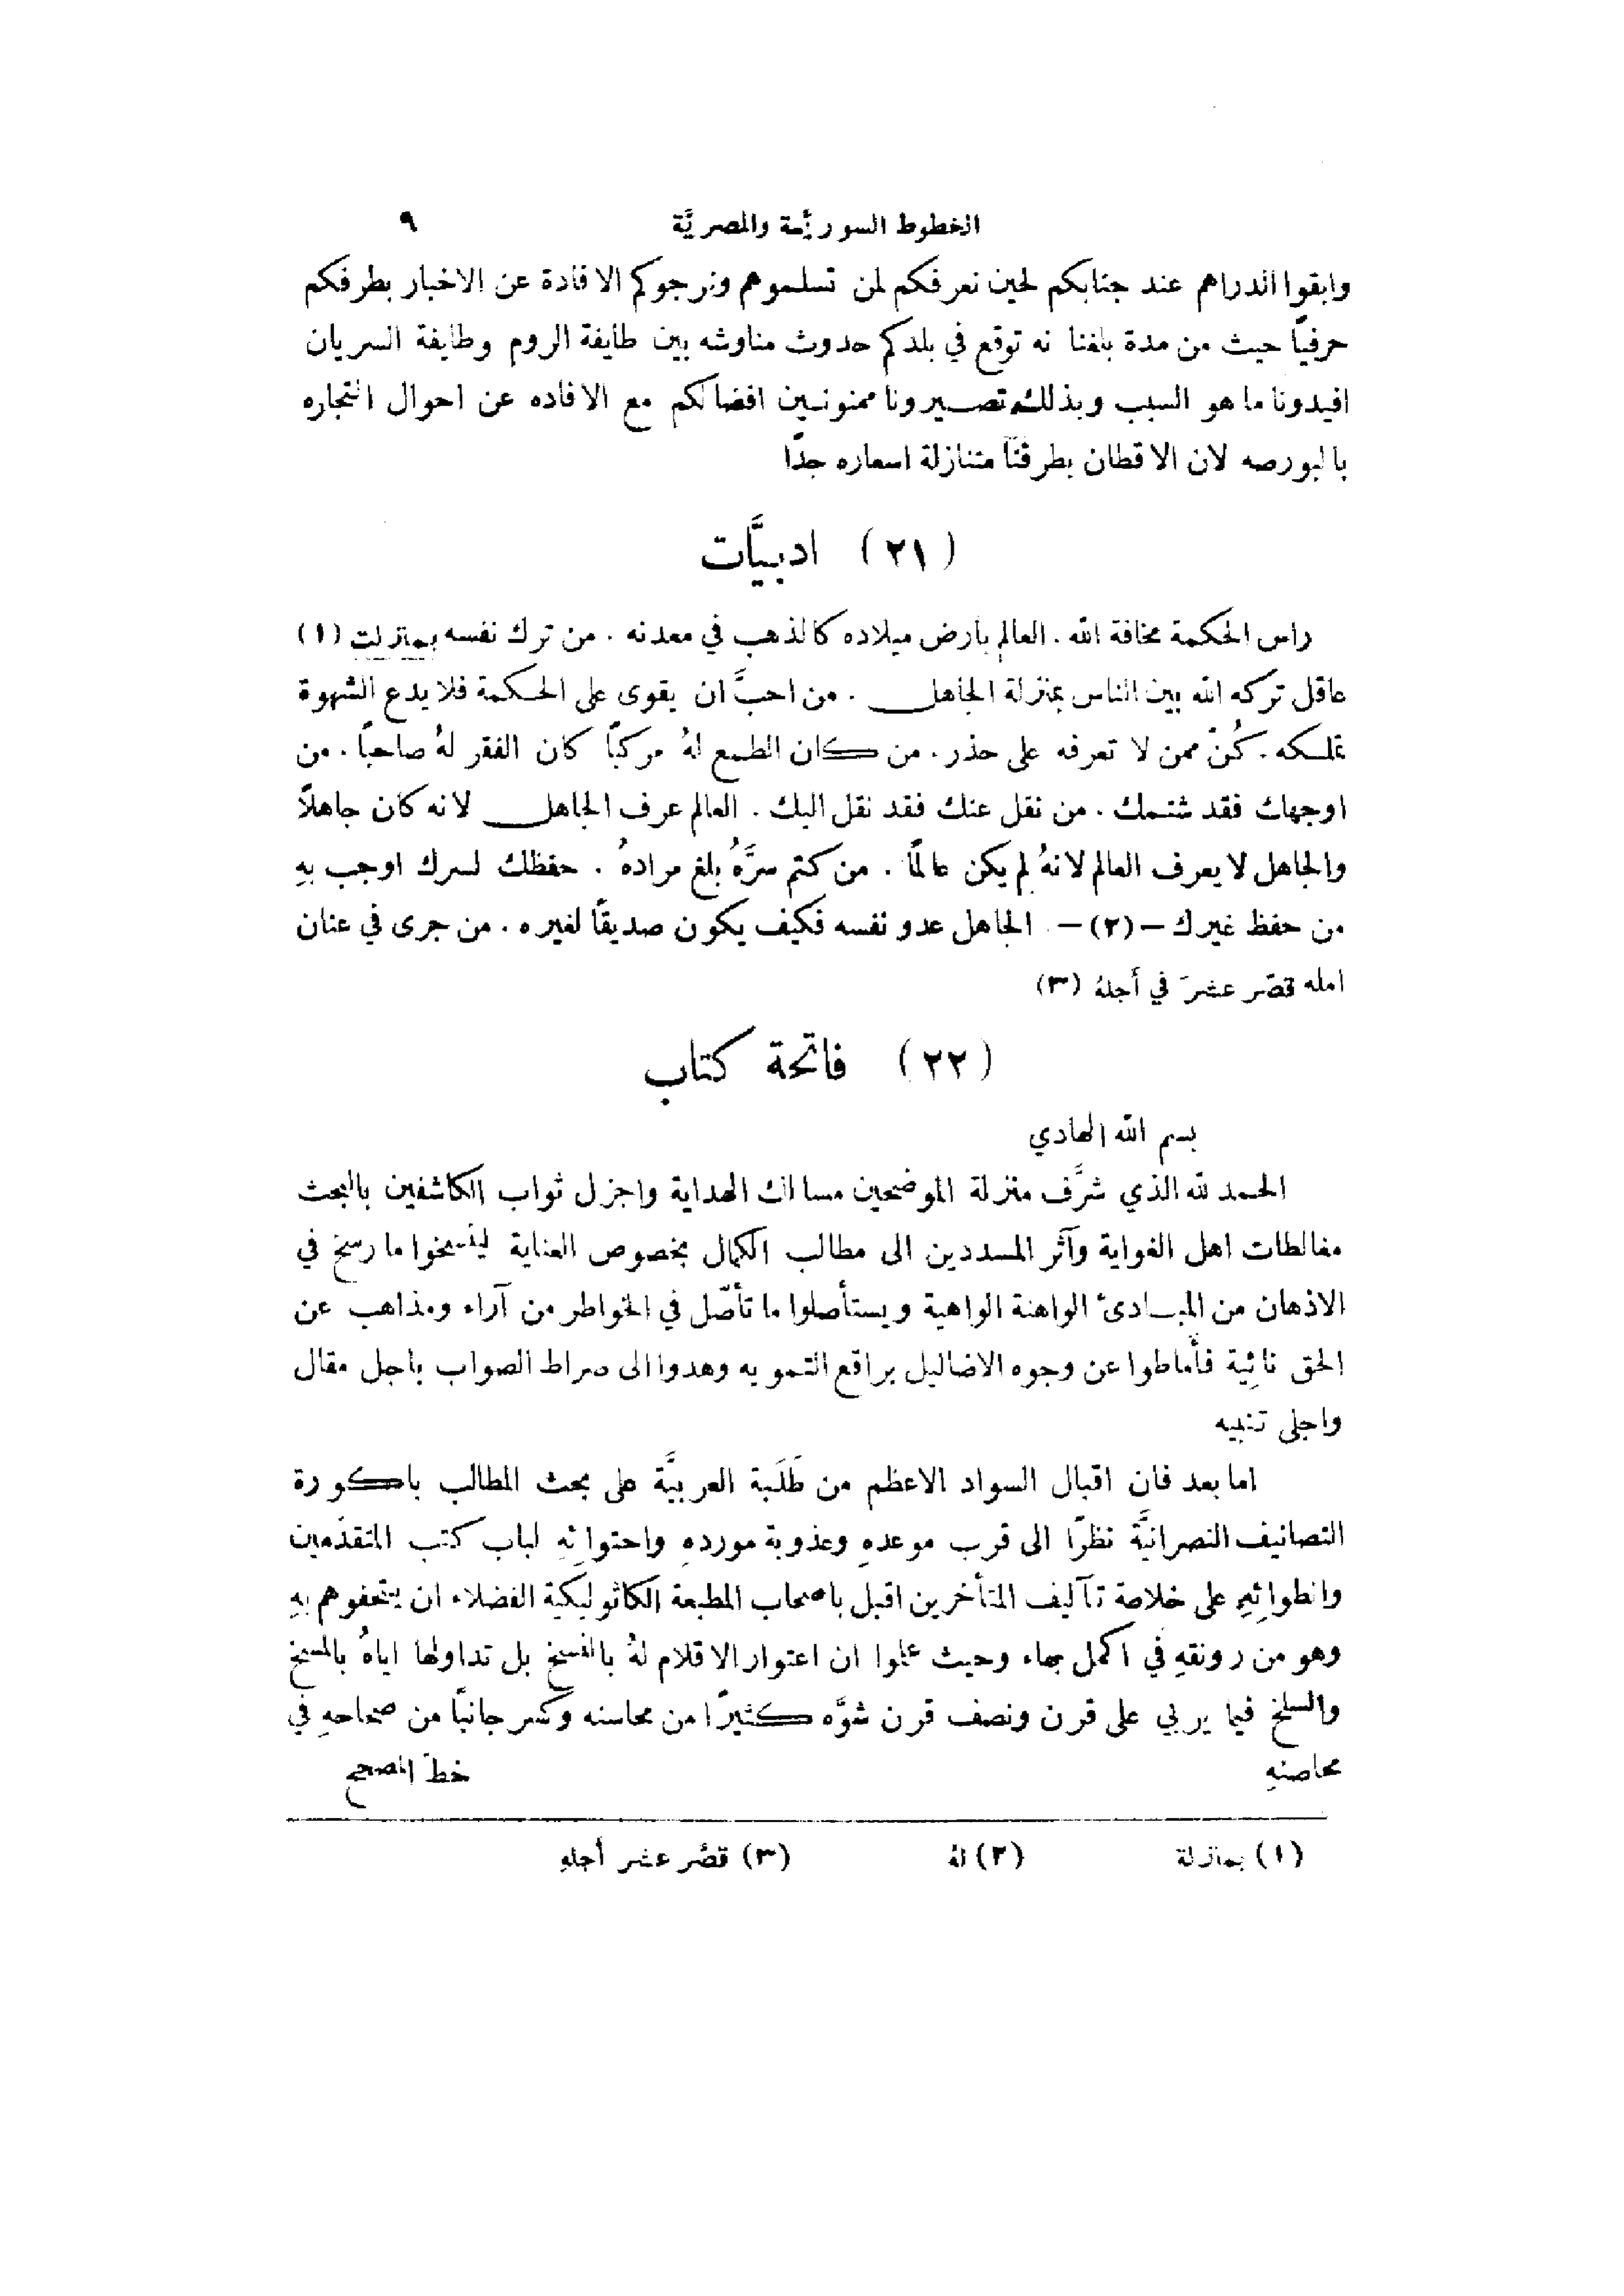 الخطوط السوريَّة والمصريَّة ٩
وابقوا الدراهم عند جنابكم لحين نعرفكم لمن تسلموهم ونرجوكم الافادة عن الاخبار بطرفكم
حرفيًا حيث من مدة بلغنا نه توقع في بلدكم حدوث مناوشه بين طايفة الروم وطايفة السريان
افيدونا ما هو السبب وبذلك تصيرونا ممنونين افضالكم مع الافاده عن احوال التجاره
بالبورصه لان الاقطان بطرفنا متنازلة اسعاره جدًا
(٢١) ادبيَّات
راس الحكمة مخافة الله . العالم بارض ميلاده كالذهب في معدنه . من ترك نفسه بمنزلت (١)
عاقل تركه الله بين الناس بمنزلة الجاهل . من احبَّ ان يقوى على الحكمة فلا يدع الشهوة
تملكه . كُنّ ممن لا تعرفه على حذر . من كان الطمع لهُ مركبًا كان الفقر لهُ صاحبًا . من
اوجهك فقد شتمك . من نقل عنك فقد نقل اليك . العالم عرف الجاهل لانه كان جاهلاً
والجاهل لا يعرف العالم لانهُ لم يكن عالمًا . من كتم سرَّهُ بلغ مرادهُ . حفظك لسرك اوجب بهِ
من حفظ غيرك – (٢) – الجاهل عدو نفسه فكيف يكون صديقًا لغيره . من جرى في عنان
امله قصّر عشرَ في أجلهُ (٣)
(٢٢) فاتحة كتاب
بسم الله الهادي
الحمد لله الذي شرَّف منزلة الموضحين مسالك الهداية واجزل ثواب الكاشفين بالبحث
مغالطات اهل الغواية وآثر المسددين الى مطالب الكمال بخصوص العناية لينسخوا ما رسخ في
الاذهان من المبادئ الواهنة الواهية ويستأصلوا ما تأصّل في الخواطر من آراء ومذاهب عن
الحق نائية فأماطوا عن وجوه الاضاليل براقع التمويه وهدوا الى صراط الصواب باجل مقال
واجلى تنبيه
اما بعد فان اقبال السواد الاعظم من طَلَبة العربيَّة على بحث المطالب باكورة
التصانيف النصرانيَّة نظرًا الى قرب موعدهِ وعذوبة موردهِ واحتوائهِ لباب كتب المتقدّمين
وانطوائهِ على خلاصة تآليف المتأخرين اقبل باصحاب المطبعة الكاثوليكية الفضلاء ان يتحفوهم بهِ
وهو من رونقهِ في اكمل بهاء وحيث علموا ان اعتوار الاقلام لهُ بالنسخ بل تداولها اياهُ بالمسخ
والسلخ فيما يربي على قرن ونصف قرن شوَّه كثيرًا من محاسنه وكسر جانبًا من صحاحهِ في
محاصنهِ خطّ المصحح
(١) بمنزلة (٢) لهُ (٣) قصَّر عشر أجلهِ